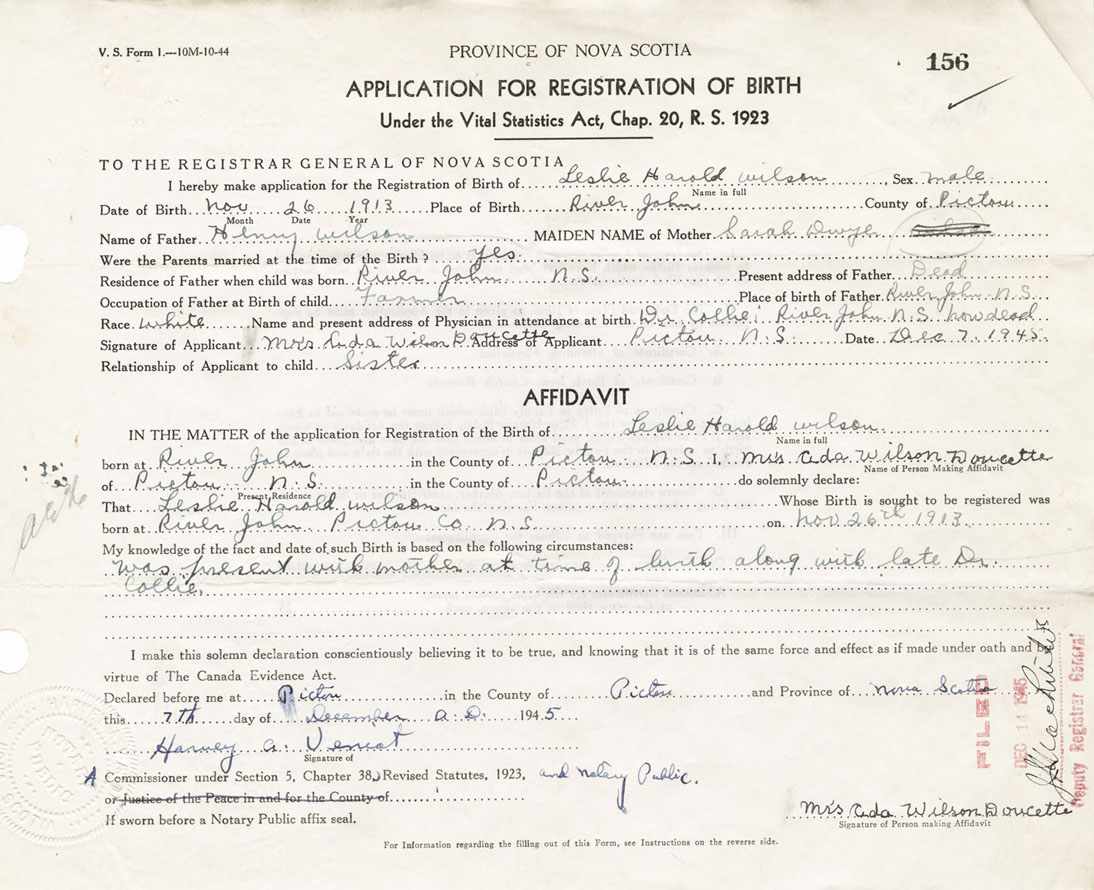 V. S. Form 1.—10M-10-44
PROVINCE OF NOVA SCOTIA
156
APPLICATION FOR REGISTRATION OF BIRTH
Under the Vital Statistics Act, Chap. 20, R. S. 1923
TO THE REGISTRAR GENERAL OF NOVA SCOTIA
I hereby make application for the Registration of Birth of Leslie Harold Wilson Sex male
Name in full
Date of Birth Nov 26 1913 Place of Birth River John County of Pictou
Month Date Year
Name of Father Henry Wilson MAIDEN NAME of Mother Sarah Dwyer
Were the Parents married at the time of the Birth? Yes
Residence of Father when child was born River John N.S. Present address of Father Dead
Occupation of Father at Birth of child Farmer Place of birth of Father River John N.S.
Race White Name and present address of Physician in attendance at birth Dr. Collie, River John N.S. now dead
Signature of Applicant Mrs Ada Wilson Doucette Address of Applicant Pictou N.S. Date Dec 7 1945
Relationship of Applicant to child Sister
AFFIDAVIT
IN THE MATTER of the application for Registration of the Birth of Leslie Harold Wilson
Name in full
born at River John in the County of Pictou N.S. I, Mrs Ada Wilson Doucette
Name of Person Making Affidavit
of Pictou N.S. in the County of Pictou do solemnly declare:
Present Residence
That Leslie Harold Wilson Whose Birth is sought to be registered was
born at River John Pictou Co. N.S. on Nov 26th 1913
My knowledge of the fact and date of such Birth is based on the following circumstances:
Was present with mother at time of birth along with late Dr.
Collie.
I make this solemn declaration conscientiously believing it to be true, and knowing that it is of the same force and effect as if made under oath and by
virtue of The Canada Evidence Act.
Declared before me at Pictou in the County of Pictou and Province of Nova Scotia
this 7th day of December A.D. 1945
Harvey A. Veniot
Signature of
A Commissioner under Section 5, Chapter 38, Revised Statutes, 1923, and Notary Public.
or Justice of the Peace in and for the County of
If sworn before a Notary Public affix seal.
Mrs Ada Wilson Doucette
Signature of Person making Affidavit
For Information regarding the filling out of this Form, see Instructions on the reverse side.
FILED
DEC 11 1945
Deputy Registrar General